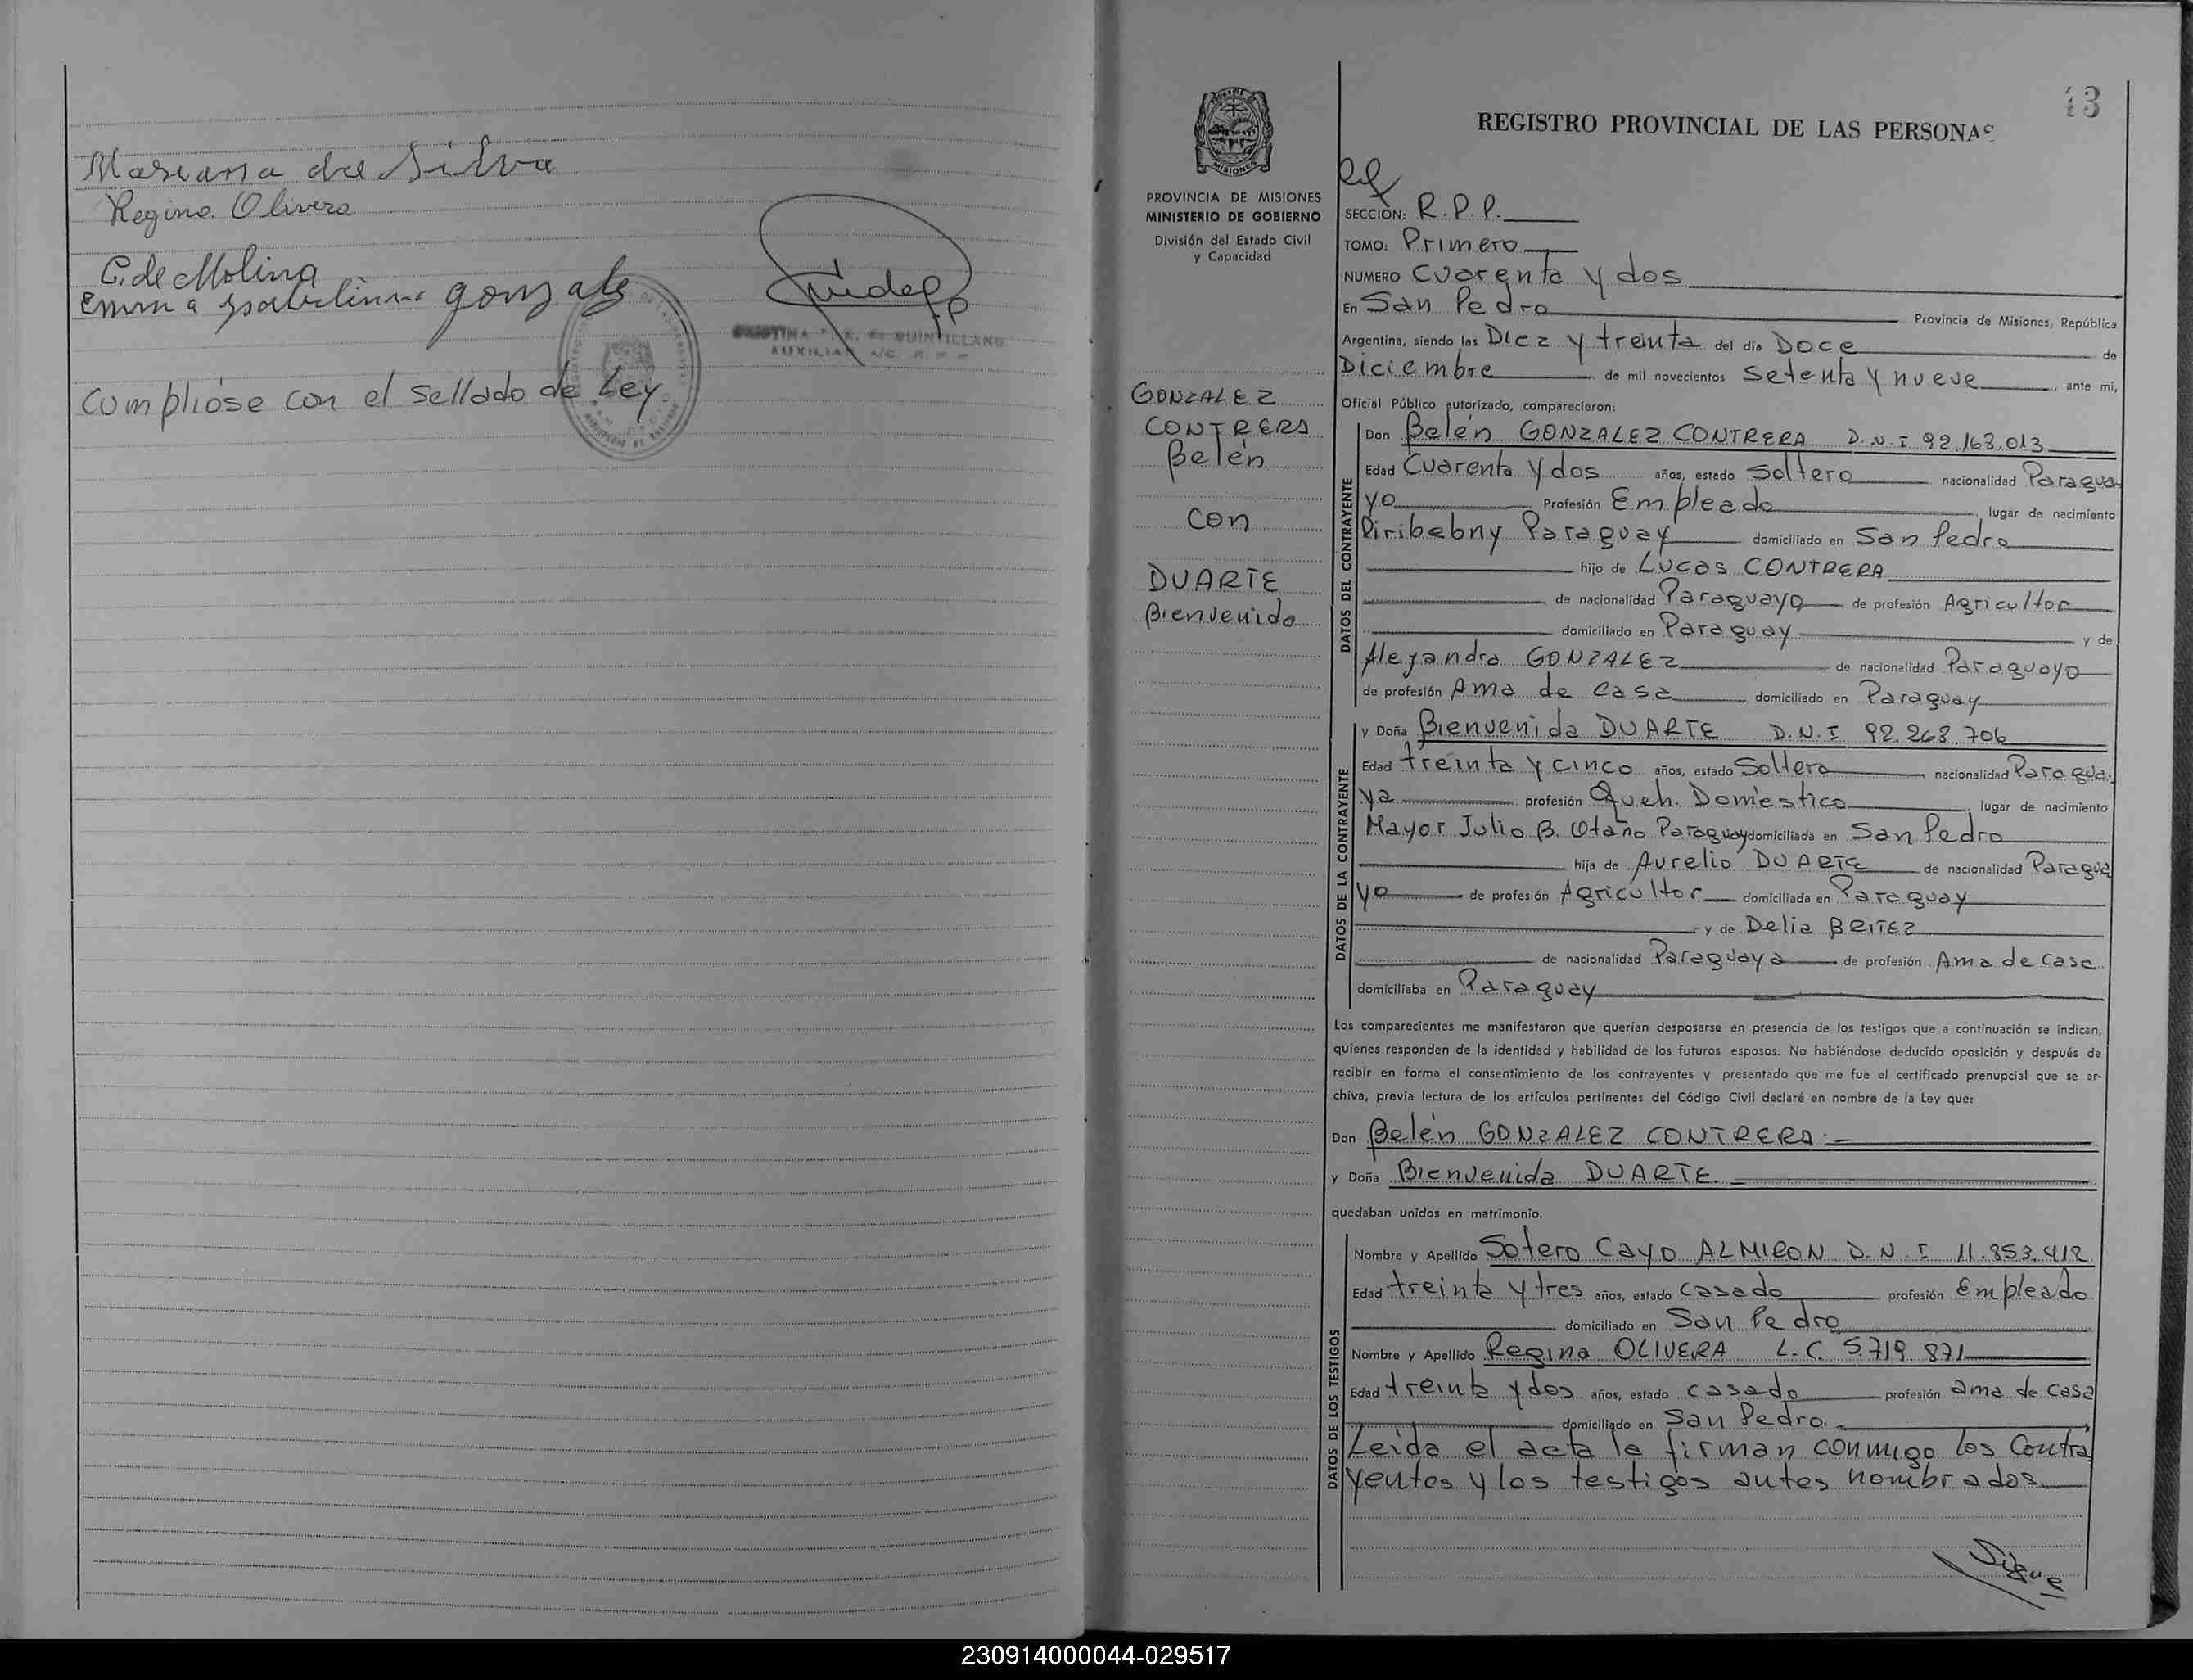 Mariana da Silva
Regina Olivera
C. de Molina
Emma gonzalez
AUXILIAR A/C R P P
Cumplióse con el sellado de Ley.
13
REGISTRO PROVINCIAL DE LAS PERSONAS
MISIONES
PROVINCIA DE MISIONES
MINISTERIO DE GOBIERNO
División del Estado Civil
y Capacidad
GONZALEZ
CONTRERA
Belén
con
DUARTE
Bienvenida
SECCION: R.P.P.
TOMO: Primero
NUMERO Cuarenta y dos
En San Pedro Provincia de Misiones, República
Argentina, siendo las Diez y treinta del día Doce de
Diciembre de mil novecientos setenta y nueve, ante mi,
Oficial Público autorizado, comparecieron:
DATOS DEL CONTRAYENTE
Don Belén GONZALEZ CONTRERA D.N.I 92.168.013
Edad Cuarenta y dos años, estado Soltero nacionalidad Paragua
yo Profesión Empleado lugar de nacimiento
Piribebny Paraguay domiciliado en San Pedro
hijo de Lucas CONTRERA
de nacionalidad Paraguayo de profesión Agricultor
domiciliado en Paraguay y de
Alejandra GONZALEZ de nacionalidad Paraguayo
de profesión Ama de casa domiciliado en Paraguay
DATOS DE LA CONTRAYENTE
y Doña Bienvenida DUARTE D.N.I 92.268.706
Edad treinta y cinco años, estado Soltera nacionalidad Paragua
ya profesión Queh. Doméstico lugar de nacimiento
Mayor Julio B. Otaño Paraguay domiciliada en San Pedro
hija de Aurelio DUARTE de nacionalidad Paragua
yo de profesión Agricultor domiciliada en Paraguay
y de Delia BRITEZ
de nacionalidad Paraguaya de profesión Ama de casa
domiciliaba en Paraguay
Los comparecientes me manifestaron que querían desposarse en presencia de los testigos que a continuación se indican,
quienes responden de la identidad y habilidad de los futuros esposos. No habiéndose deducido oposición y después de
recibir en forma el consentimiento de los contrayentes y presentado que me fue el certificado prenupcial que se ar-
chiva, previa lectura de los artículos pertinentes del Código Civil declaré en nombre de la Ley que:
Don Belén GONZALEZ CONTRERA.-
y Doña Bienvenida DUARTE.-
quedaban unidos en matrimonio.
DATOS DE LOS TESTIGOS
Nombre y Apellido Sotero Cayo ALMIRON D.N.I 11.853.412
Edad treinta y tres años, estado casado profesión Empleado
domiciliado en San Pedro
Nombre y Apellido Regina OLIVERA L.C. 5.719.871
Edad treinta y dos años, estado casado profesión ama de casa
domiciliado en San Pedro.-
Leída el acta la firman conmigo los Contra
yentes y los testigos antes nombrados.
Sigue
230914000044-029517